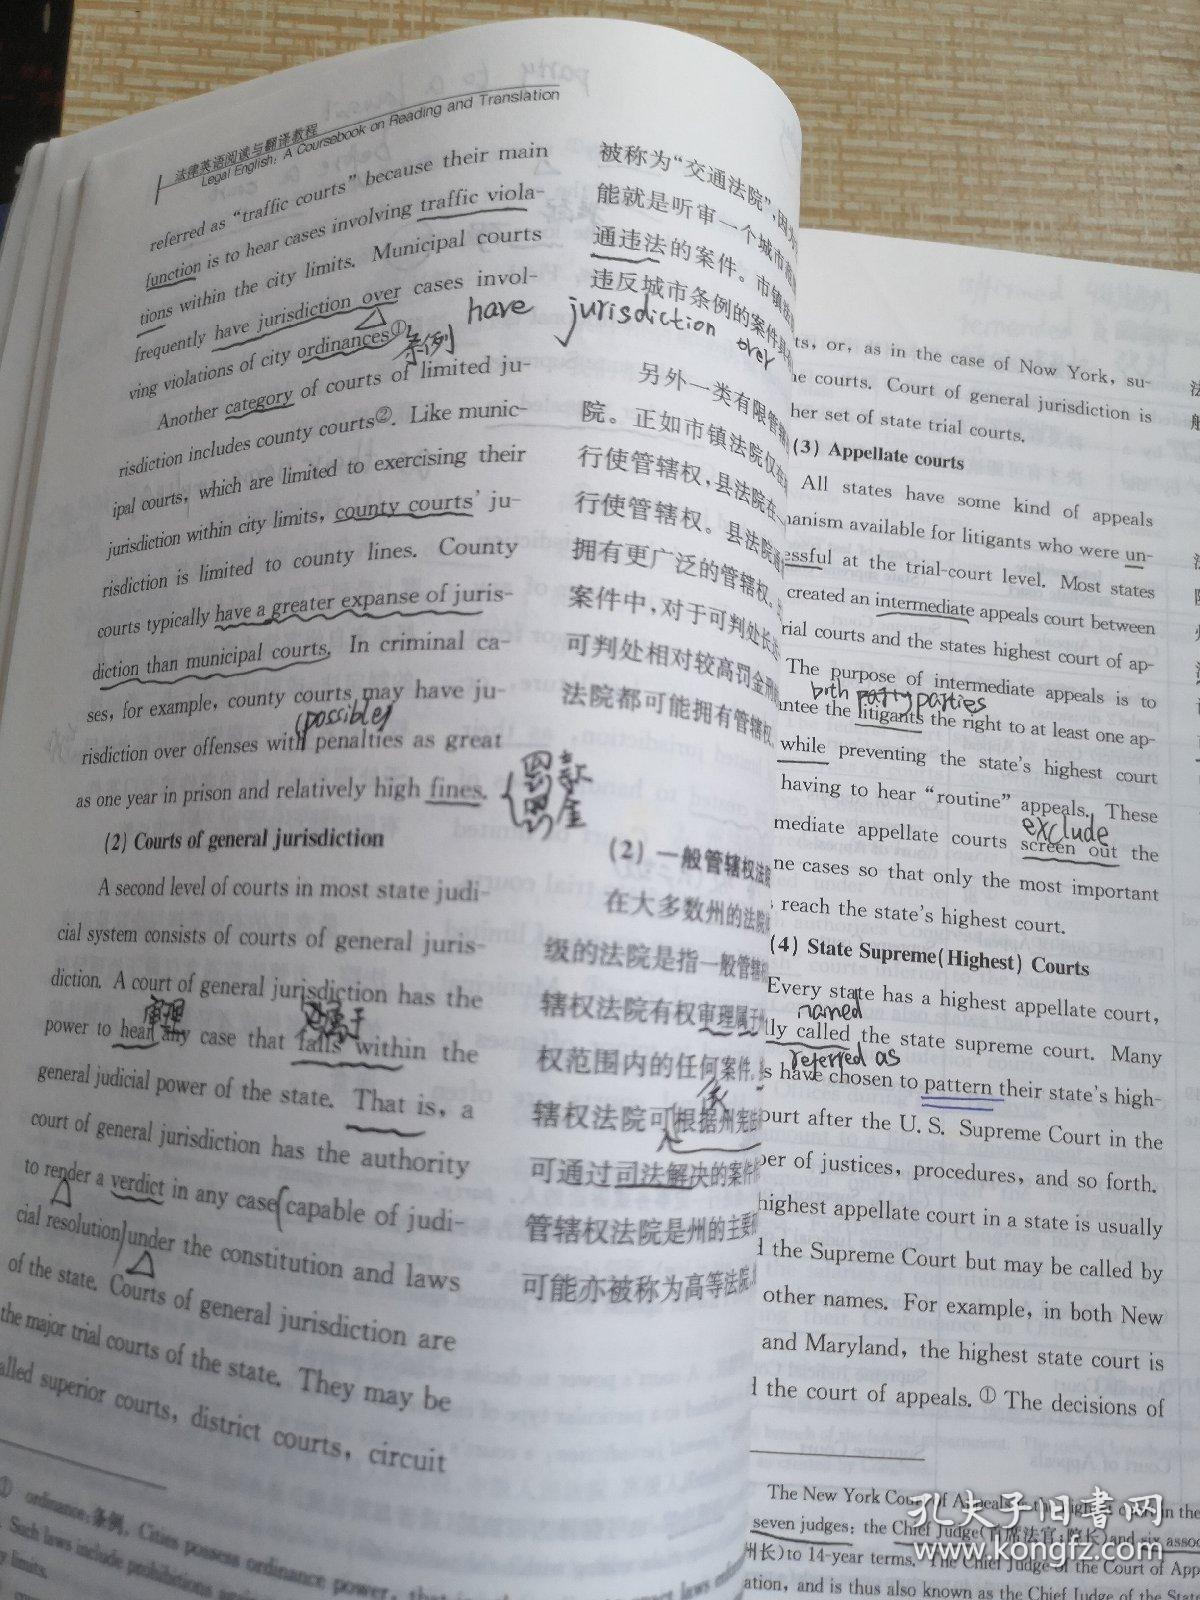 法律英语阅读与翻译教程
Legal English: A Coursebook on Reading and Translation
referred as “traffic courts” because their main
function is to hear cases involving traffic viola-
tions within the city limits. Municipal courts
frequently have jurisdiction over cases invol-
ving violations of city ordinances①
条例
have jurisdiction over
Another category of courts of limited ju-
risdiction includes county courts②. Like munic-
ipal courts, which are limited to exercising their
jurisdiction within city limits, county courts’ ju-
risdiction is limited to county lines. County
courts typically have a greater expanse of juris-
diction than municipal courts. In criminal ca-
ses, for example, county courts may have ju-
(possible)
risdiction over offenses with penalties as great
as one year in prison and relatively high fines.
罚款
罚金
(2) Courts of general jurisdiction
A second level of courts in most state judi-
cial system consists of courts of general juris-
diction. A court of general jurisdiction has the
审理
属于
power to hear any case that falls within the
general judicial power of the state. That is, a
court of general jurisdiction has the authority
to render a verdict in any case capable of judi-
cial resolution under the constitution and laws
of the state. Courts of general jurisdiction are
the major trial courts of the state. They may be
alled superior courts, district courts, circuit
① ordinance:条例. Cities possess ordinance power,
Such laws include prohibitions
y limits.
被称为“交通法院”,因为
能就是听审一个城市范
通违法的案件。市镇法
违反城市条例的案件具
另外一类有限管辖
院。正如市镇法院仅在
行使管辖权,县法院在
行使管辖权。县法院通
拥有更广泛的管辖权。
案件中,对于可判处长达
可判处相对较高罚金刑
法院都可能拥有管辖权。
(2) 一般管辖权法院
在大多数州的法院
级的法院是指一般管辖
辖权法院有权审理属于
权范围内的任何案件。
辖权法院可根据州宪法
可通过司法解决的案件
管辖权法院是州的主要
可能亦被称为高等法院、
ts, or, as in the case of Now York, su-
ne courts. Court of general jurisdiction is
her set of state trial courts.
(3) Appellate courts
All states have some kind of appeals
hanism available for litigants who were un-
essful at the trial-court level. Most states
created an intermediate appeals court between
rial courts and the states highest court of ap-
The purpose of intermediate appeals is to
both party parties
antee the litigants the right to at least one ap-
while preventing the state’s highest court
having to hear “routine” appeals. These
exclude
mediate appellate courts screen out the
ne cases so that only the most important
reach the state’s highest court.
(4) State Supreme(Highest) Courts
Every state has a highest appellate court,
named
tly called the state supreme court. Many
referred as
s have chosen to pattern their state’s high-
ourt after the U. S. Supreme Court in the
ber of justices, procedures, and so forth.
highest appellate court in a state is usually
d the Supreme Court but may be called by
other names. For example, in both New
and Maryland, the highest state court is
d the court of appeals.① The decisions of
The New York Court of Appeals is the highest court in the
seven judges: the Chief Judge(首席法官;院长)and six assoc
州长)to 14-year terms. The Chief Judge of the Court of App
ation, and is thus also known as the Chief Judge of the State
孔夫子旧书网
www.kongfz.com